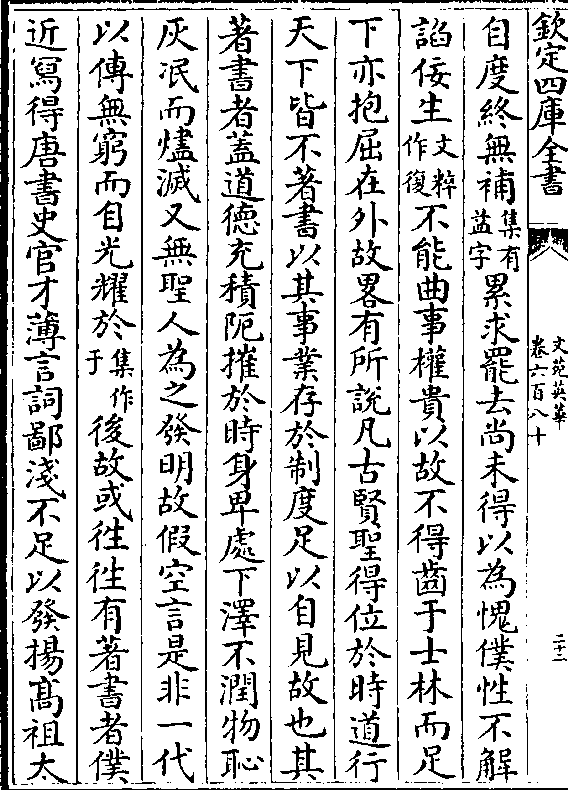 欽定四庫全書
文苑英華
卷六百八十
二十二
自度終無補集有益字累求罷去尚未得以為愧僕性不解
諂佞生文粹作復不能曲事權貴以故不得齒于士林而足
下亦抱屈在外故畧有所說凡古賢聖得位於時道行
天下皆不著書以其事業存於制度足以自見故也其
著書者蓋道德充積阨摧於時身卑處下澤不潤物恥
灰泯而燼滅又無聖人為之發明故假空言是非一代
以傳無窮而自光耀於集作于後故或徃徃有著書者僕
近冩得唐書史官才薄言詞鄙淺不足以發揚高祖太